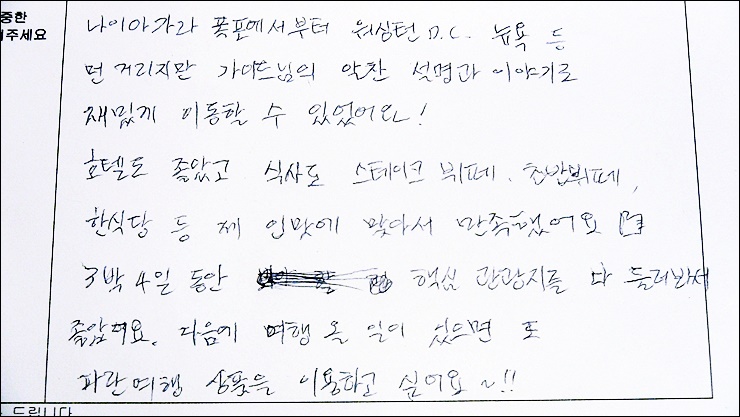 중한
겨주세요
나이아가라 폭포에서부터 워싱턴 D.C. 뉴욕 등
먼 거리지만 가이드님의 알찬 설명과 이야기로
재밌게 이동할 수 있었어요!
호텔도 좋았고 식사도 스테이크 뷔페, 초밥뷔페,
한식당 등 제 입맛에 맞아서 만족했어요
3박 4일 동안 핵심 관광지를 다 둘러봐서
좋았어요. 다음에 여행 올 일이 있으면 또
파란여행 상품을 이용하고 싶어요~!!
드립니다